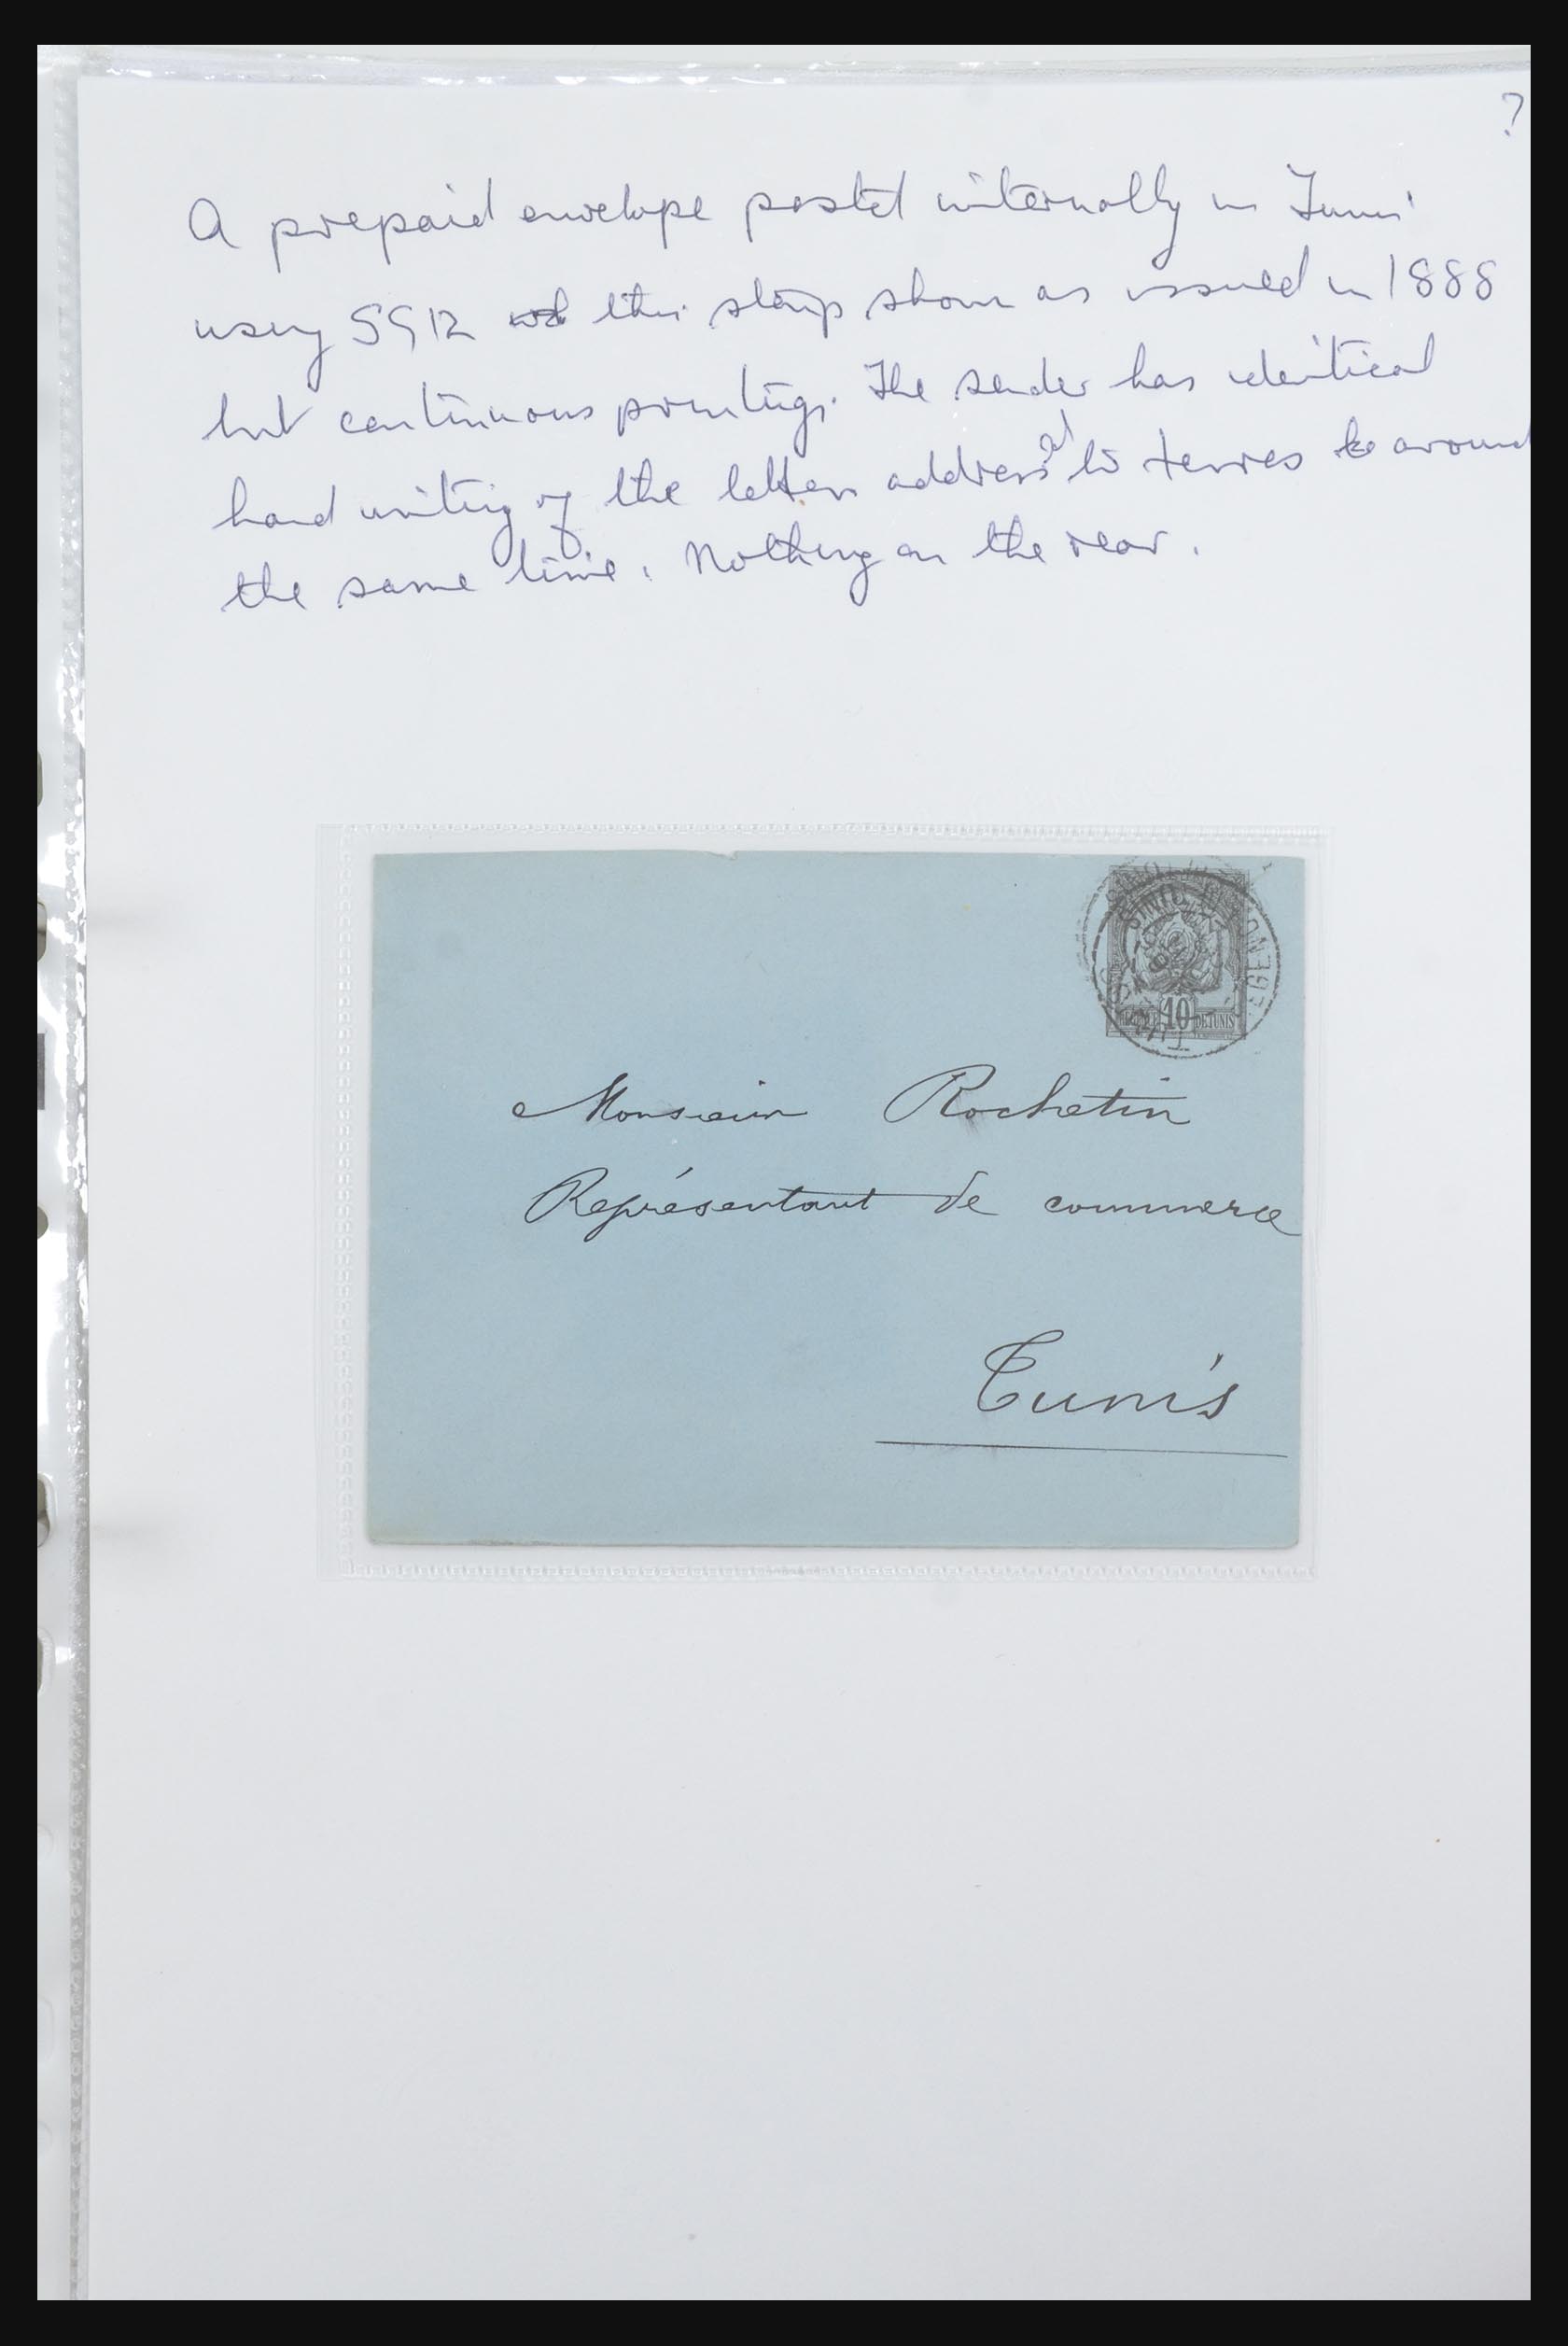 ?
A prepaid envelope posted internally in Tunis
using SG12 this stamp shown as issued in 1888
but continuous printings. The sender has identical
hand writing of the letters addressed to
around
the same time. Nothing on the rear.
10
DE TUNIS
Monsieur Rochetin
Représentant de commerce
Tunis